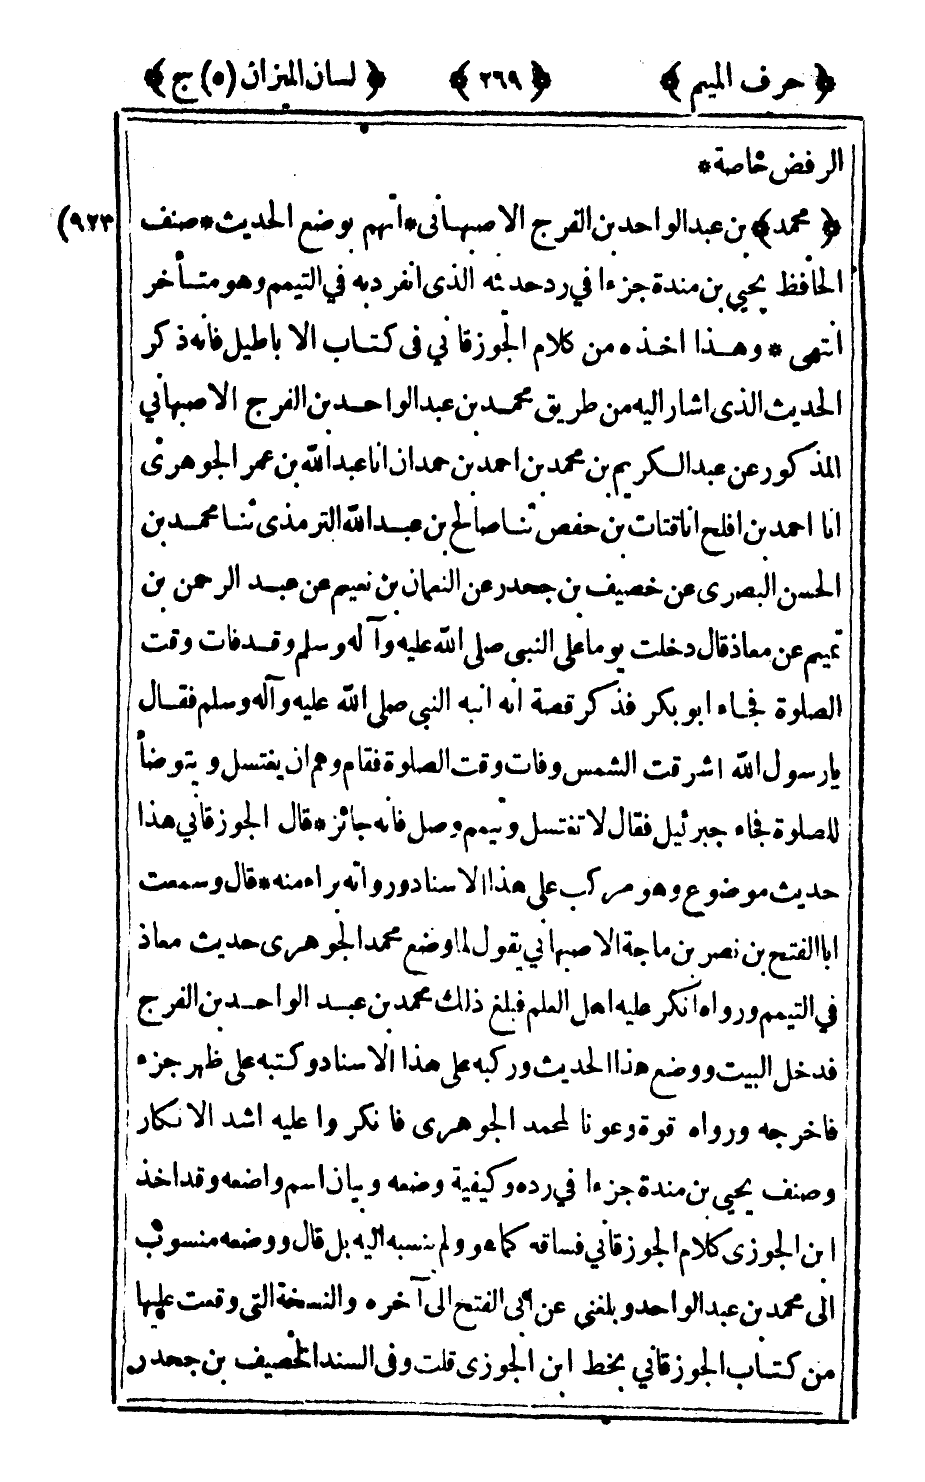 ﴿ حرف الميم ﴾ ﴿ ٢٦٩ ﴾ ﴿ لسان الميزان (٥) ج ﴾
الرفض خاصة *
(٩٢٣) ﴿ محمد ﴾ بن عبد الواحد بن الفرج الاصبهانى * اتهم بوضع الحديث * صنف
الحافظ يحيي بن مندة جزءا في رد حديثه الذى انفرد به في التيمم وهو متأخر
انتهى * وهذا اخذه من كلام الجوزقاني فى كتاب الا باطيل فانه ذكر
الحديث الذى اشار اليه من طريق محمد بن عبد الواحد بن الفرج الاصبهاني
المذكور عن عبد الكريم بن محمد بن احمد بن حمدان انا عبد الله بن عمر الجوهرى
انا احمد بن افلح انا قتات بن حفص ثنا صالح بن عبد الله الترمذى ثنا محمد بن
الحسن البصرى عن خصيف بن جحدر عن النعمان بن نعيم عن عبد الرحمن بن
تميم عن معاذ قال دخلت يوما على النبى صلى الله عليه وآ له وسلم وقد فات وقت
الصلوة فجاء ابو بكر فذكر قصة انه انبه النبي صلى الله عليه وآله وسلم فقال
يارسول الله اشرقت الشمس وفات وقت الصلوة فقام وهم ان يغتسل و يتوضأ
للصلوة فجاء جبرئيل فقال لا تغتسل وتيمم وصل فانه جائز * قال الجوزقاني هذا
حديث موضوع وهو مركب على هذا الاسناد ورواته براء منه * قال وسمعت
ابا الفتح بن نصر بن ماجة الاصبهاني يقول لما وضع محمد الجوهرى حديث معاذ
في التيمم ورواه انكر عليه اهل العلم فبلغ ذلك محمد بن عبد الواحد بن الفرج
فدخل البيت ووضع هذا الحديث وركبه على هذا الاسناد وكتبه على ظهر جزء
فاخرجه ورواه قوة وعونا لمحمد الجوهرى فا نكر وا عليه اشد الا نكار
وصنف يحيي بن مندة جزءا في رده وكيفية وضعه وبيان اسم واضعه وقد اخذ
ابن الجوزى كلام الجوزقاني فساقه كما هو ولم ينسبه اليه بل قال ووضعه منسوب
الى محمد بن عبد الواحد وبلغني عن ابى الفتح الى آخره والنسخة التى وقعت عليها
من كتاب الجوزقاني بخط ابن الجوزى قلت وفى السند الخصيف بن جحدر